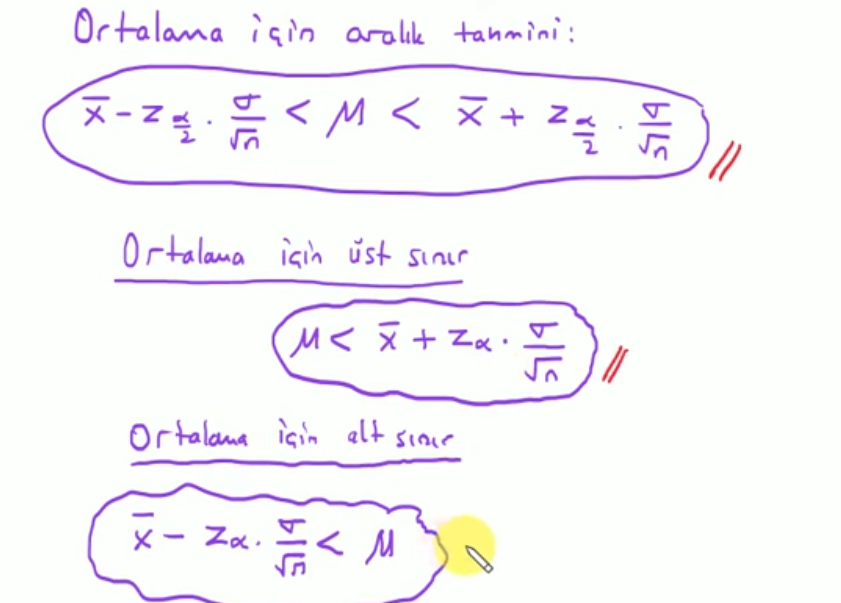 Ortalama için aralık tahmini:
x̄ - z_{α/2} · σ/√n < μ < x̄ + z_{α/2} · σ/√n
Ortalama için üst sınır
μ < x̄ + z_α · σ/√n
Ortalama için alt sınır
x̄ - z_α · σ/√n < μ